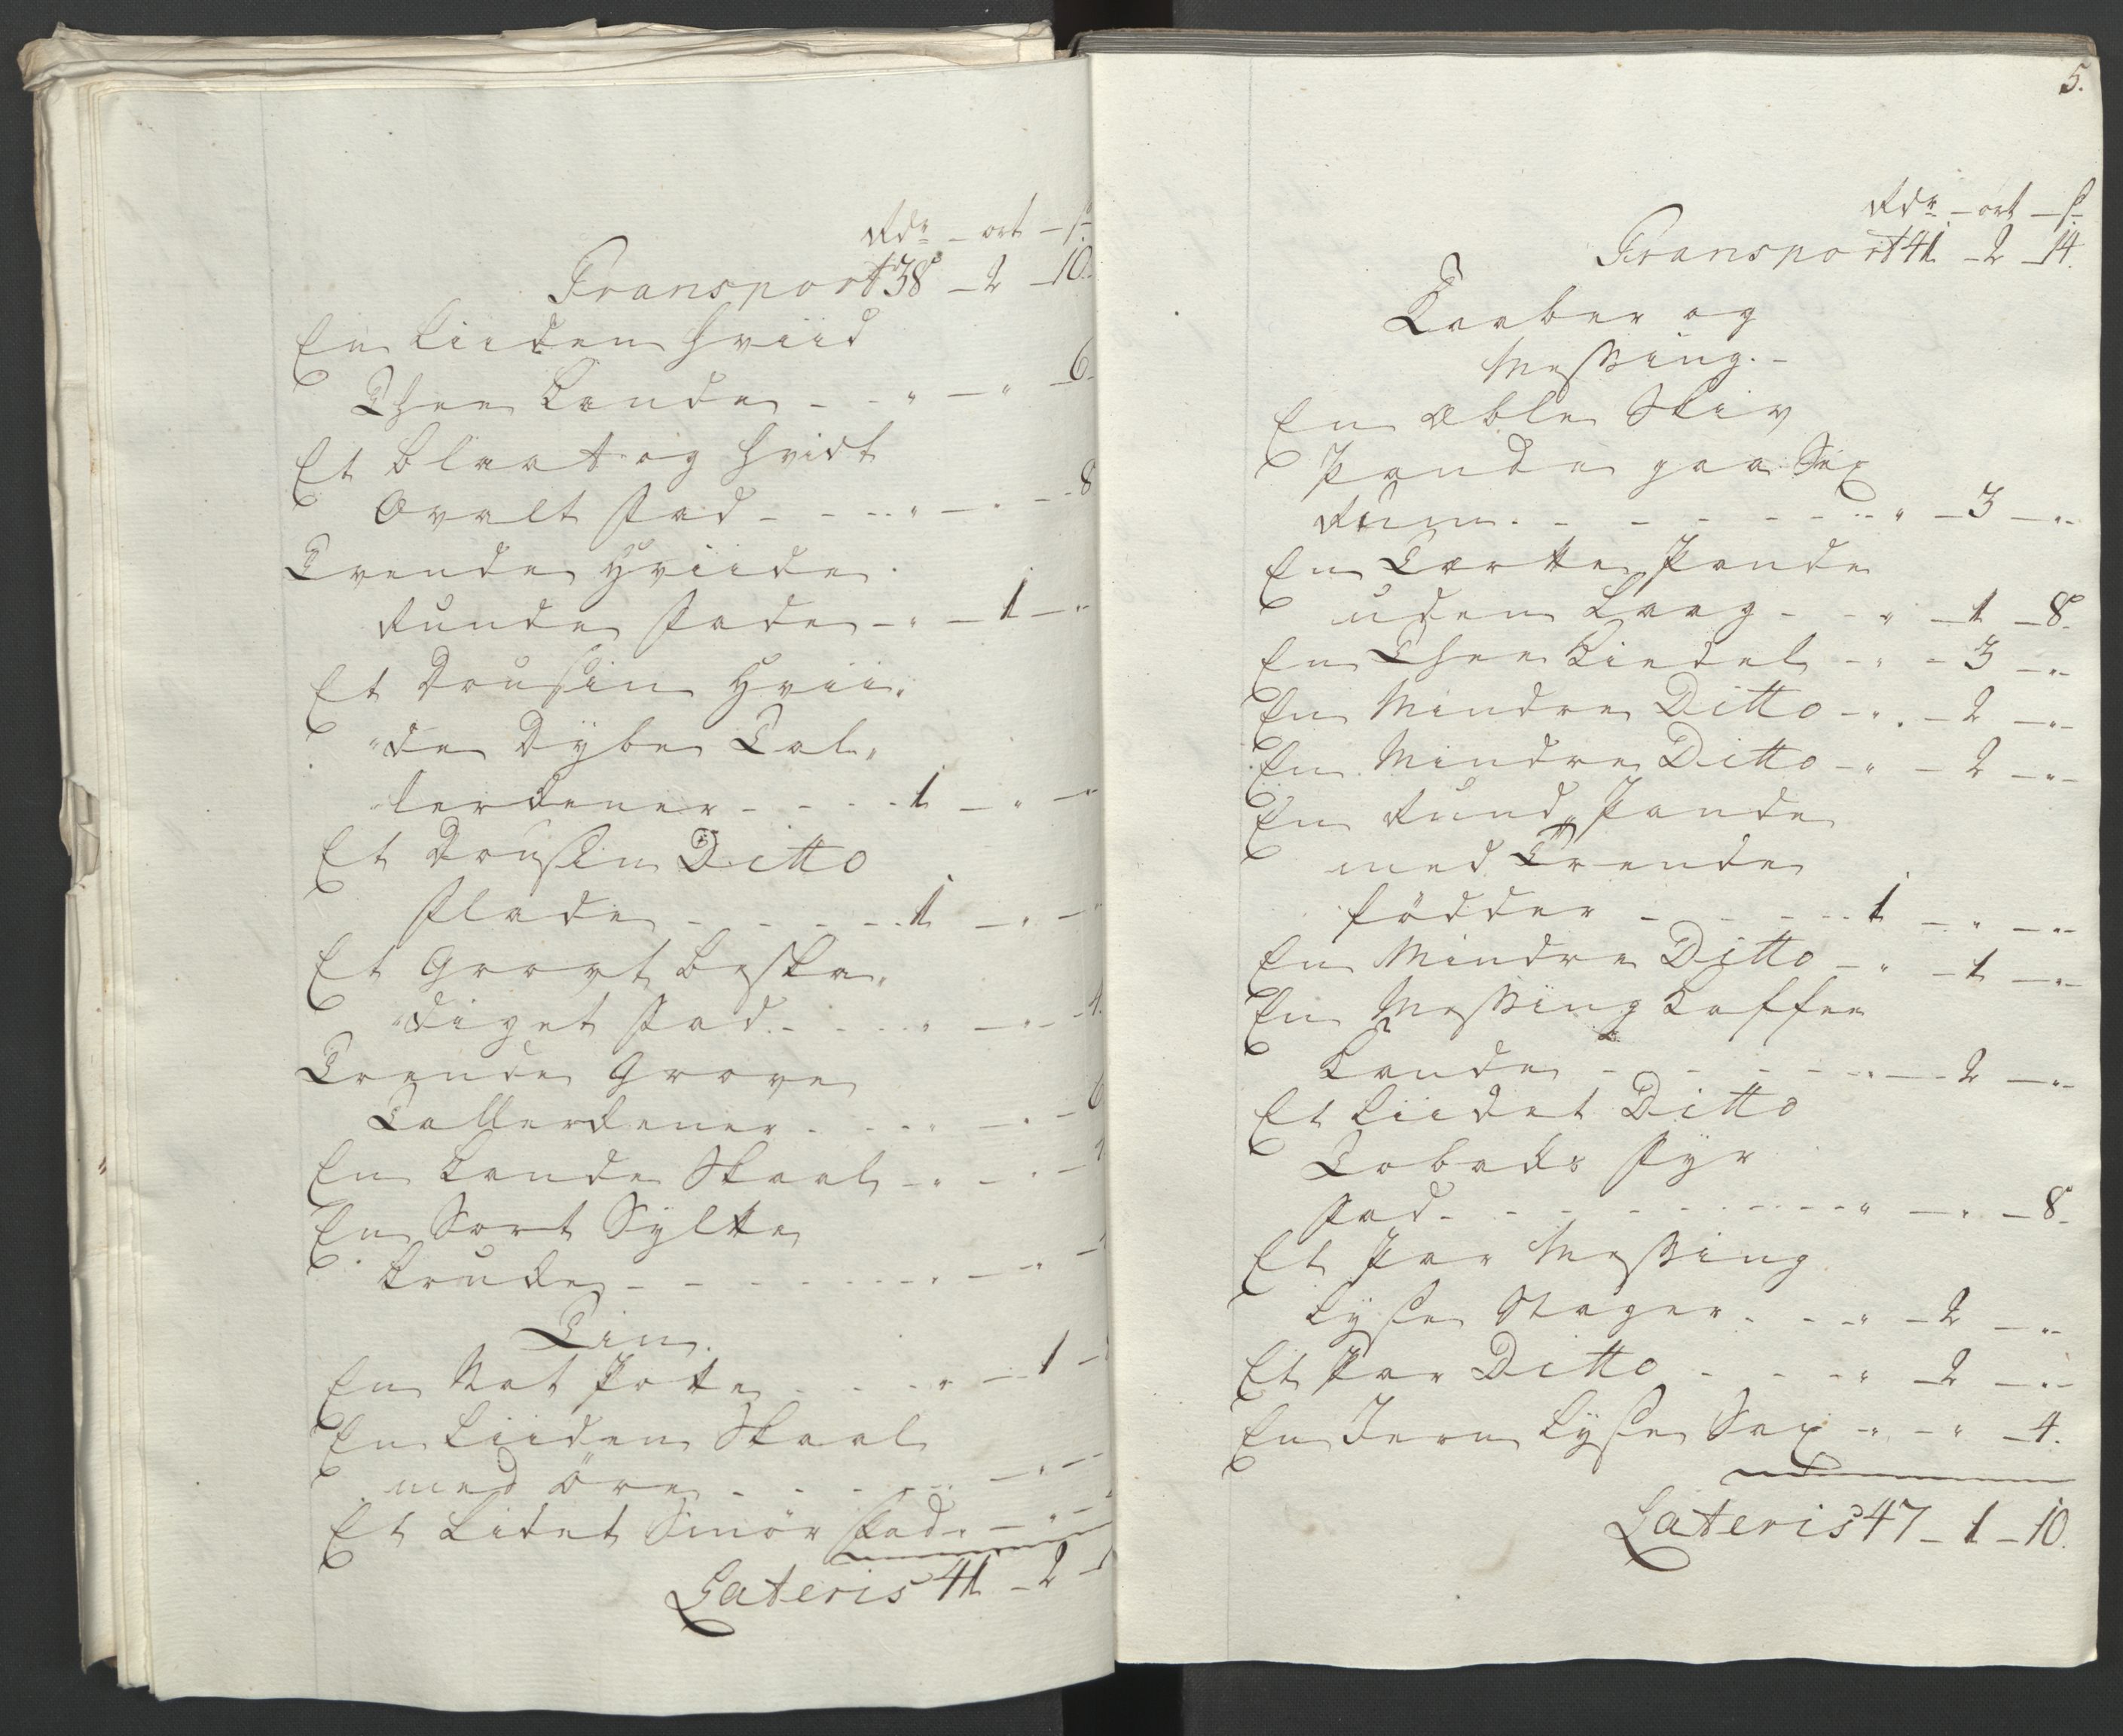 Rdr - ort - s
Transport 38 - 2 - 10.
En Liiden Hviid
Thee Kande - - " - " - 6.
Et blaat og hvidt
Ovalt Fad - - - - " - " - 8
Tvende Hviide
Runde Fade - " - 1 - "
Et Dousin Hvii„
„de Dybe Tal„
lerkener - - - - 1 - " - "
Et Dousin Ditto
Flade - - - - - 1 - " - "
Et Grovt beska„
„diget Fad - - - " - " - 4.
Trende Grove
Tallerkener - - - " - " - 6
En Kande Skaal - " - " -
En Sort Sylte
Krukke - - - - - - " - " -
Tin.
En Nat Potte - - - " - 1 -
En Liiden Skaal
med Öre - - - - - " -
Et Lidet Smör Fad - " - " -
Lateris 41 - 2 -
5.
Rdr - ort - s
Transport 41 - 2 - 14.
Kaaber og
Messing. -
En Æble Skiv
Pande paa Sex
Rum - - - - - - - " - 3 - "
En Tærte Pande
uden Laag - - - " - 1 - 8.
En Thee Kiedel - " - 3 - "
En Mindre Ditto - " - 2 - "
En Mindre Ditto - " - 2 - "
En Rund Pande
med Trende
födder - - - - - 1 - " - "
En Mindre Ditto - " - 1 - "
En Messing Kaffee
Kande - - - - - - " - 2 - "
Et Liidet Ditto
Tobaks Fyr
Fad - - - - - - - - " - " - 8.
Et Par Messing
Lyse Stager - - - " - 2 - "
Et Par Ditto - - - " - 2 - "
En Jern Lyse Sax - " - " - 4.
Lateris 47 - 1 - 10.